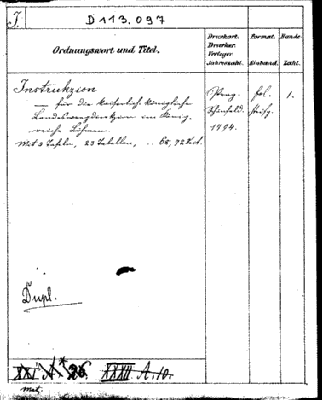 I.
D 113.097
Ordnungswort und Titel.
Druckort. Drucker. Verleger Jahreszahl.
Format. Einband.
Bände-Zahl.
Instrukzion
— für die kaiserlich königliche
im König-
reiche Böhmen.
Mit 3 Tafeln, 23 Tabellen,
Prag.
Schönfeld.
1794.
fol.
1.
Dupl.
XXXII A. 10.